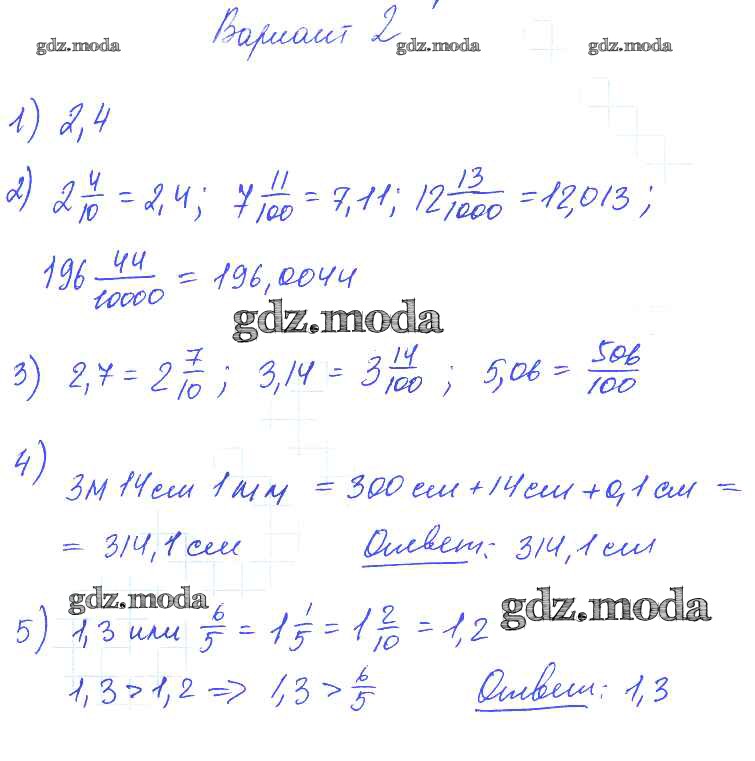 Вариант 2
gdz.moda gdz.moda gdz.moda
1) 2,4
2) 2 4/10 = 2,4; 7 11/100 = 7,11; 12 13/1000 = 12,013;
196 44/10000 = 196,0044
gdz.moda
3) 2,7 = 2 7/10; 3,14 = 3 14/100; 5,06 = 506/100
4) 3м 14см 1мм = 300см + 14см + 0,1см =
= 314,1см Ответ: 314,1см
gdz.moda gdz.moda
5) 1,3 или 6/5 = 1 1/5 = 1 2/10 = 1,2
1,3 > 1,2 => 1,3 > 6/5 Ответ: 1,3